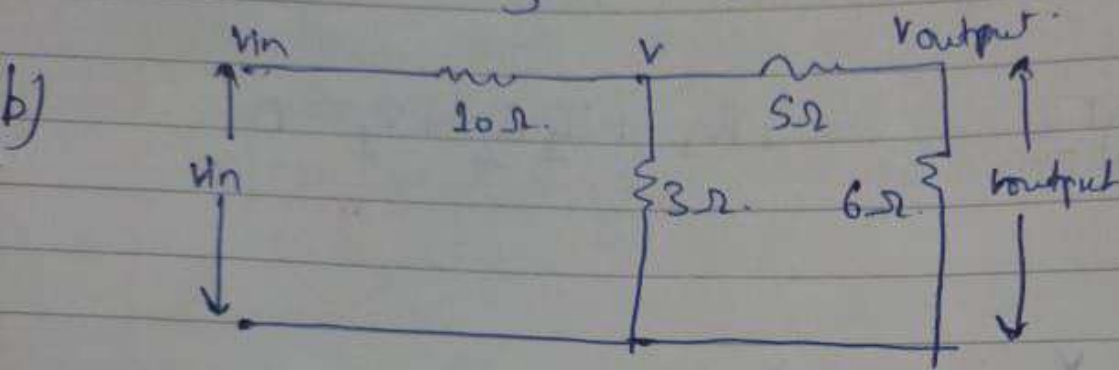 b)
Vin
V
Voutput.
10Ω.
5Ω
Vin
3Ω.
6Ω.
Voutput